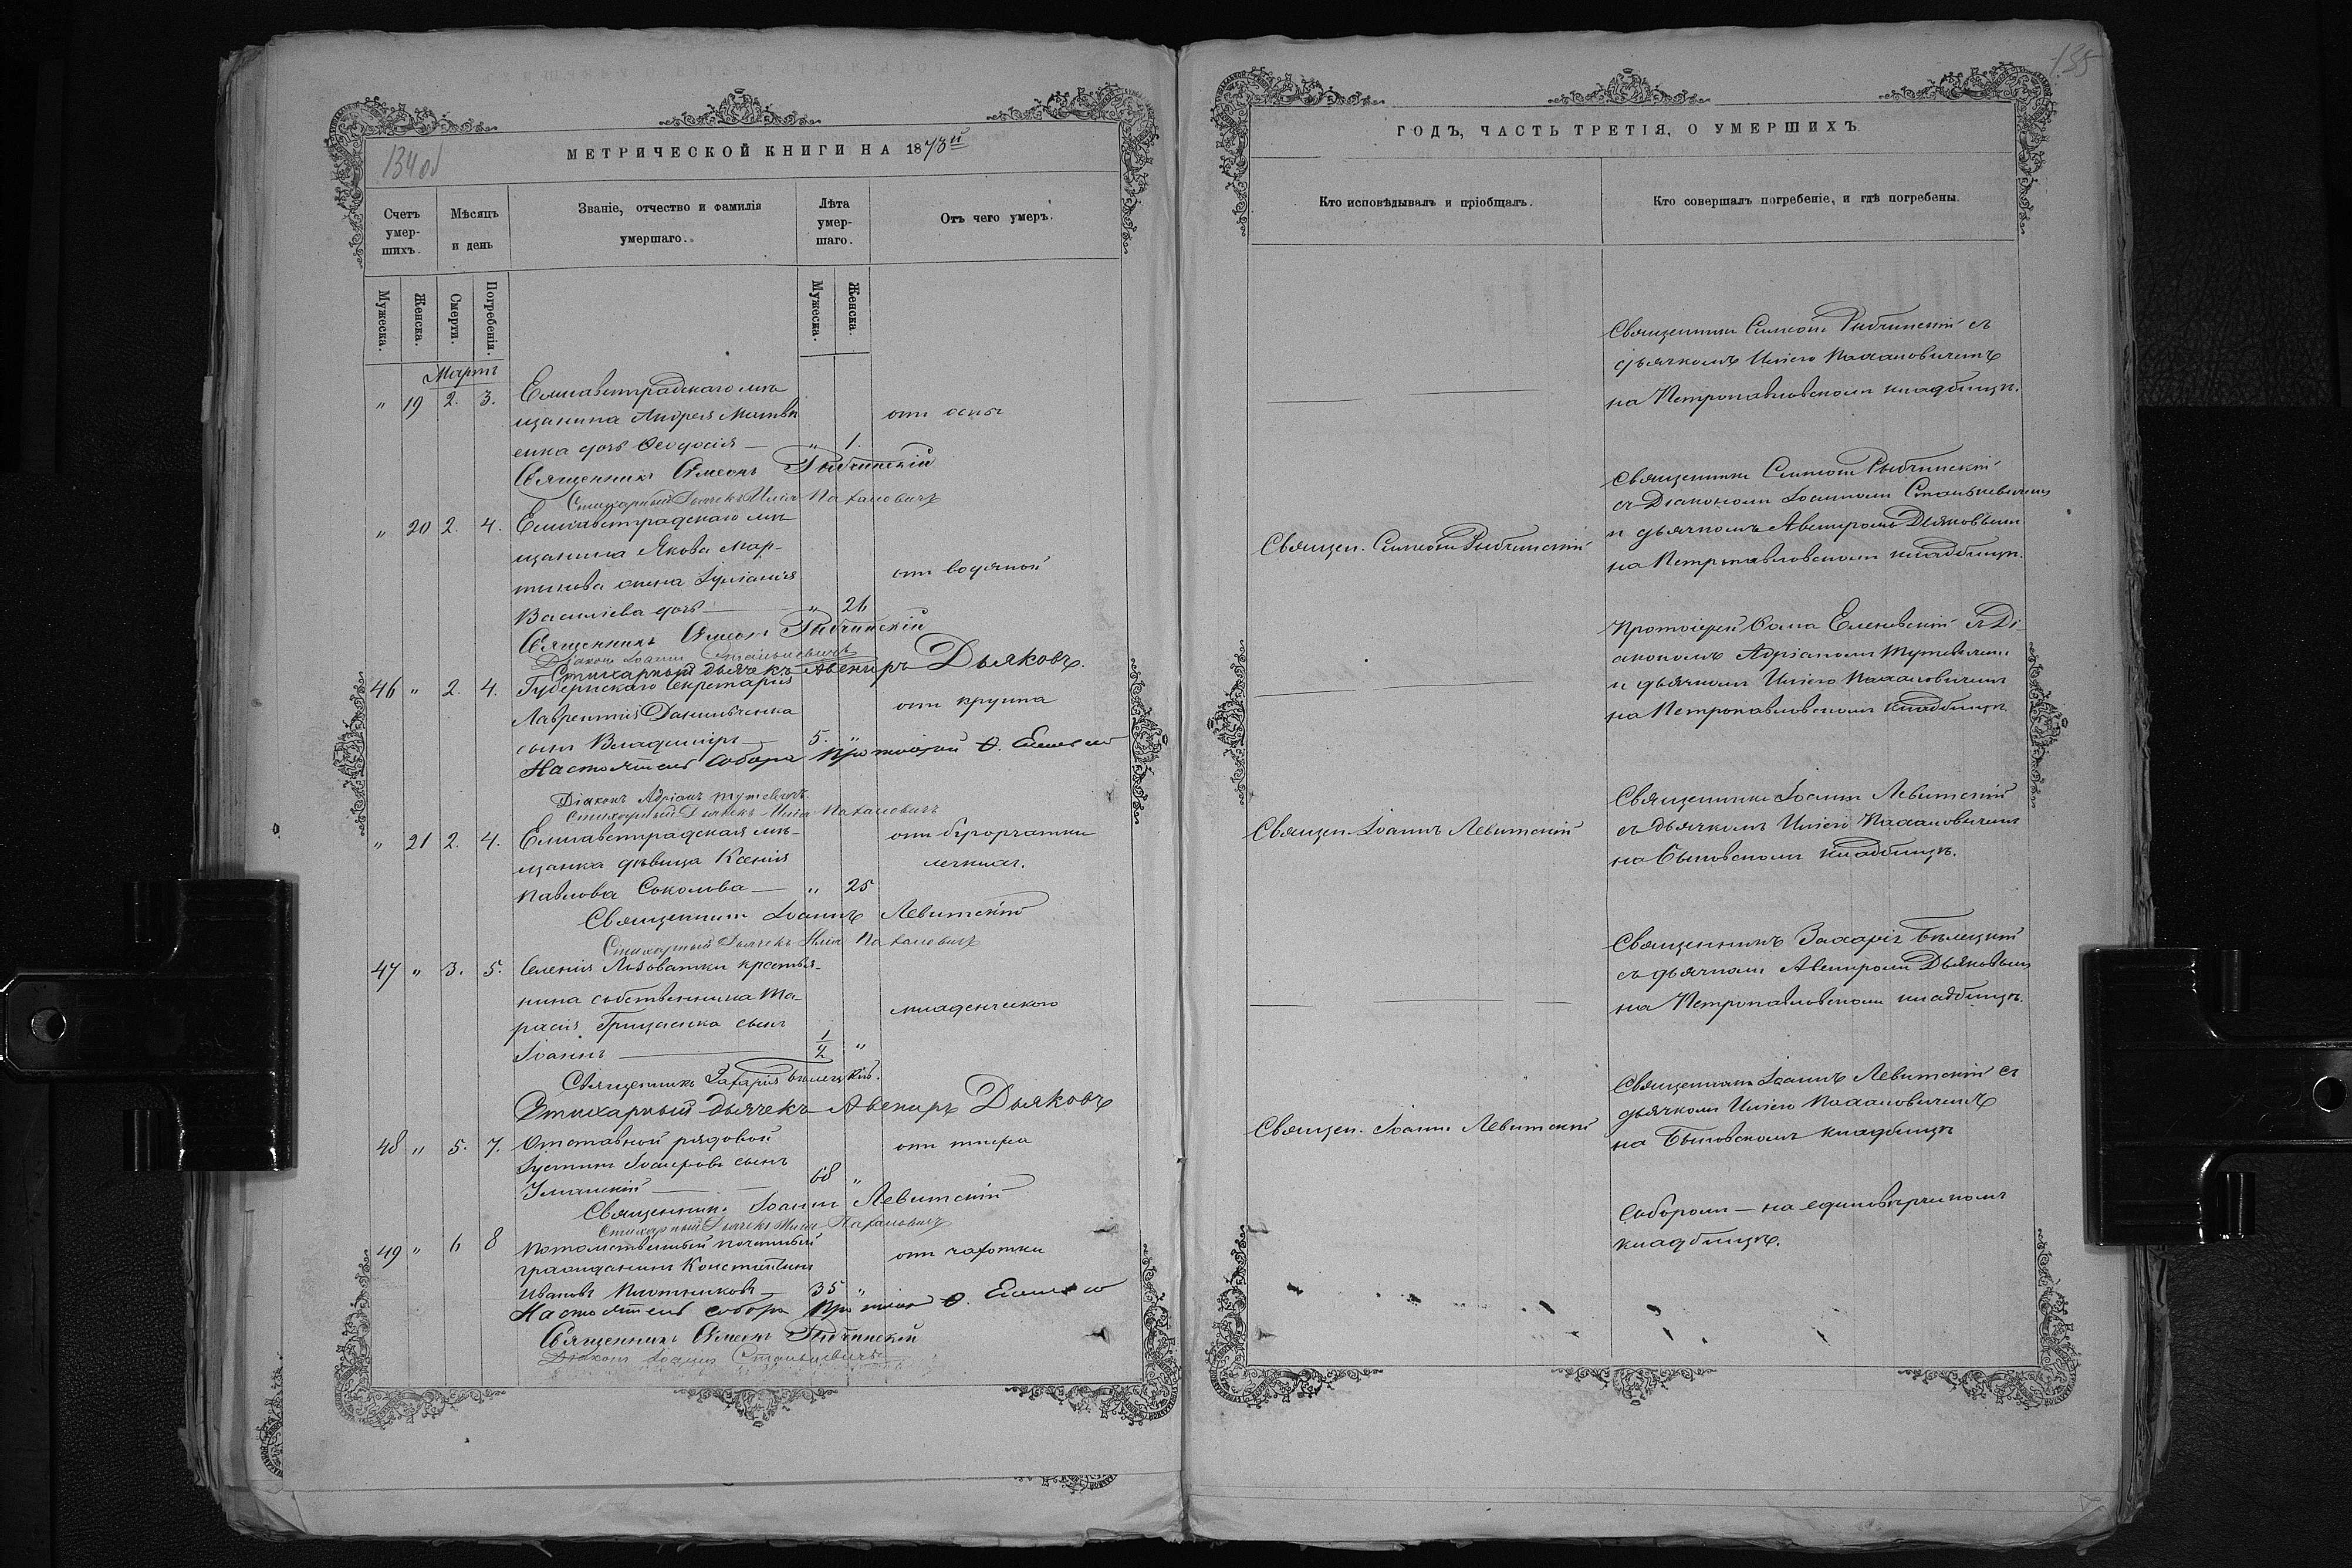 134 об
МЕТРИЧЕСКОЙ КНИГИ НА 1873й
Счетъ умер-шихъ.
Мѣсяцъ и день
Званіе, отчество и фамилія умершаго.
Лѣта умер-шаго.
Отъ чего умеръ.
Мужеска.
Женска.
Смерти.
Погребенія.
Мужеска.
Женска.
Мартъ
" 19 2. 3. Елисаветградскаго мѣ-
щанина Андрея Матвѣ отъ оспы
енка дочь Ѳеодосія — " 1.
Священникъ Симеонъ Рыбчинскій
Стихарный Дьячекъ Илія Пахаловичъ
" 20 2. 4. Елисаветградскаго мѣ-
щанина Якова Мар-
тинова жена Іуліанія отъ водяной
Василіева дочь — " 26
Священникъ Симеонъ Рыбчинскій
Діаконъ Іоаннъ Станькевичъ
Стихарный дьячекъ Авениръ Дьяковъ.
46 " 2. 4. Губернскаго Секретаря
Лаврентія Данильченка отъ крупа
сынъ Владиміръ — 5. "
Настоятель собора Протоіерей Ѳ.
Діаконъ Адріанъ Тутевичъ.
Стихарный Дьячекъ Илія Пахаловичъ
" 21 2. 4. Елисаветградская мѣ- отъ бугорчатки
щанка дѣвица Ксенія легкихъ.
Павлова Соколова — " 25
Священникъ Іоаннъ Левитскій
Стихарный Дьячекъ Илія Пахаловичъ
47 " 3. 5. Селенія Лѣзоватки крестья-
нина собственника Та-
расія Грищенка сынъ младенческаго
Іоаннъ — 1/2 "
Священникъ Захарія Бѣлецкій.
Стихарный дьячекъ Авениръ Дьяковъ
48 " 5. 7. Отставной рядовой отъ тифа
Іустинъ Іосифовъ сынъ
Уманскій — 68 "
Священникъ Іоаннъ Левитскій
Стихарный Дьячекъ Илія Пахаловичъ
49 " 6 8 Потомственный почетный
гражданинъ Константинъ отъ чахотки
Ивановъ Плотниковъ — 35 "
Настоятель собора Ѳ.
Священникъ Симеонъ Рыбчинскій
Діаконъ Іоаннъ Станькевичъ
135
ГОДЪ, ЧАСТЬ ТРЕТІЯ, О УМЕРШИХЪ.
Кто исповѣдывалъ и пріобщалъ.
Кто совершалъ погребеніе, и гдѣ погребены.
Священникъ Симеонъ Рыбчинскій съ
дьячкомъ Иліею Пахаловичемъ
на Петропавловскомъ кладбищѣ.
Священникъ Симеонъ Рыбчинскій
съ Діакономъ Іоанномъ Станькевичемъ
Священ. Симеонъ Рыбчинскій
и дьячкомъ Авениромъ Дьяковымъ
на Петропавловскомъ кладбищѣ.
Протоіерей Ѳома Еленевскій съ Ді-
акономъ Адріаномъ Тутевичемъ
и дьячкомъ Иліею Пахаловичемъ
на Петропавловскомъ кладбищѣ
Священникъ Іоаннъ Левитскій
Священ. Іоаннъ Левитскій
съ дьячкомъ Иліею Пахаловичемъ
на Быковскомъ кладбищѣ.
Священникъ Захарія Бѣлецкій
съ дьячкомъ Авениромъ Дьяковымъ
на Петропавловскомъ кладбищѣ.
Священникъ Іоаннъ Левитскій съ
Священ. Іоаннъ Левитскій
дьячкомъ Иліею Пахаловичемъ
на Быковскомъ кладбищѣ
Соборомъ — на единовѣрческомъ
кладбищѣ.